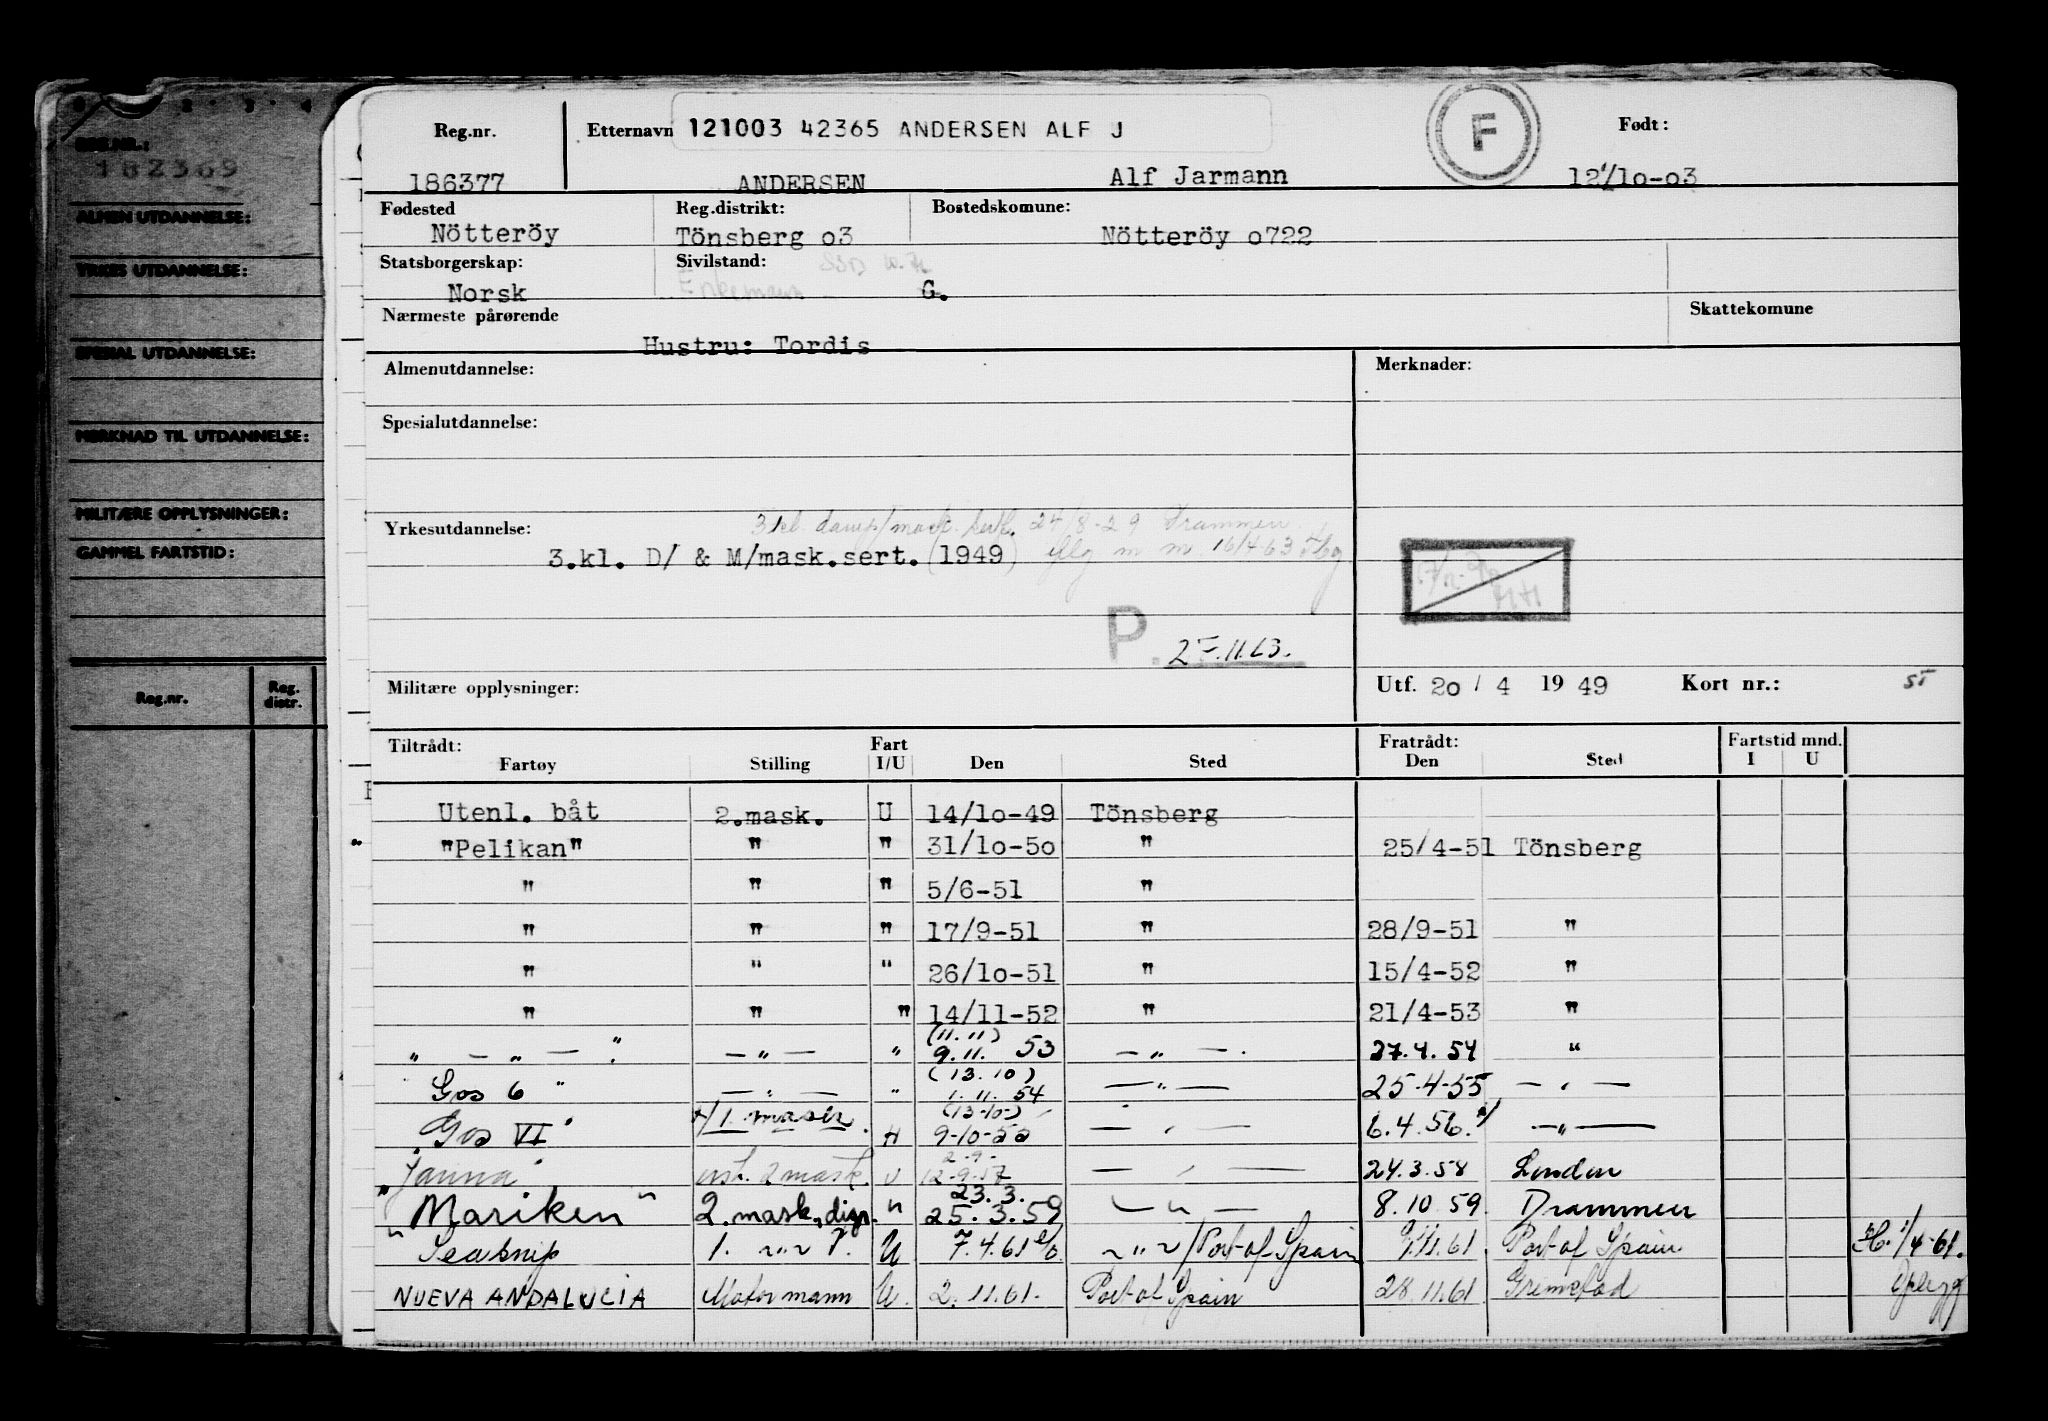 REG.NR.:
182369
ALMEN UTDANNELSE:
YRKES UTDANNELSE:
SPESIAL UTDANNELSE:
MERKNAD TIL UTDANNELSE:
MILITÆRE OPPLYSNINGER:
GAMMEL FARTSTID:
Reg.nr. Reg. distr.
Reg.nr. Etternavn 121003 42365 ANDERSEN ALF J F Født:
186377 ANDERSEN Alf Jarmann 12/10-03
Fødested Reg.distrikt: Bostedskomune:
Nötteröy Tönsberg o3 Nötteröy o722
Statsborgerskap: Sivilstand:
Norsk Enkemann G.
Nærmeste pårørende Skattekomune
Hustru: Tordis
Almenutdannelse: Merknader:
Spesialutdannelse:
3 kl. damp/mask. sert. 24/8-29 Drammen.
Yrkesutdannelse:
3.kl. D/ & M/mask.sert. (1949) 16/4-63
P. 27.11.63.
Militære opplysninger: Utf. 20 / 4 19 49 Kort nr.: 5
Tiltrådt: Fart Fratrådt: Fartstid mnd.
Fartøy Stilling I/U Den Sted Den Sted I U
Utenl. båt 2.mask. U 14/10-49 Tönsberg
"Pelikan" " " 31/10-50 " 25/4-51 Tönsberg
" " " 5/6-51 "
" " " 17/9-51 " 28/9-51 "
" " " 26/10-51 " 15/4-52 "
" " " 14/11-52 " 21/4-53 "
(11.11)
" — " — " — " — " 9.11. 53 — " — . 27.4.54 "
(13.10)
Gos 6 " — " — " 1.11.54 — " — 25.4-55 — " —
(13-10-)
"Gos VI" 1. mask. 9-10-55 — " — 6.4.56. — " —
2-9-
"Janna" 2 mask. U 12-9-57 — " — 24.3.58 London
23.3.
"Mariken" 2. mask. disp. " 25.3.59 — " — 8.10.59. Drammen
"Seasnip 1. " U 7.4.61 — " — / Port of Spain 9/11.61. Port of Spain 1/4-61.
NUEVA ANDALUCIA Motormann U. 2.11.61. Port of Spain 28.11.61 Grimstad